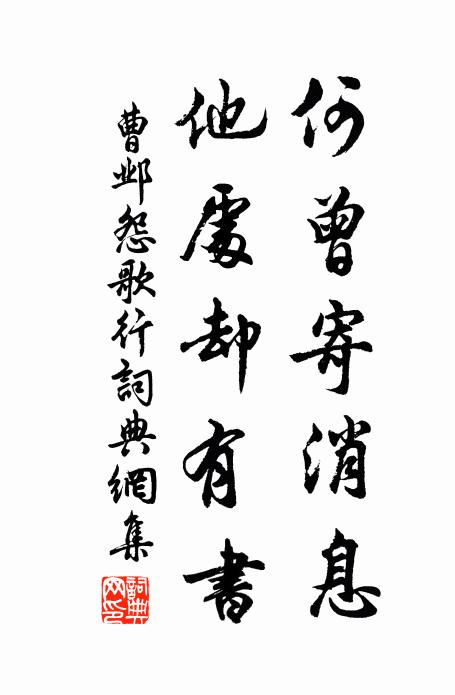 何曾寄消息
他處却有書
曹邺怨歌行詞典網集
詞典网印